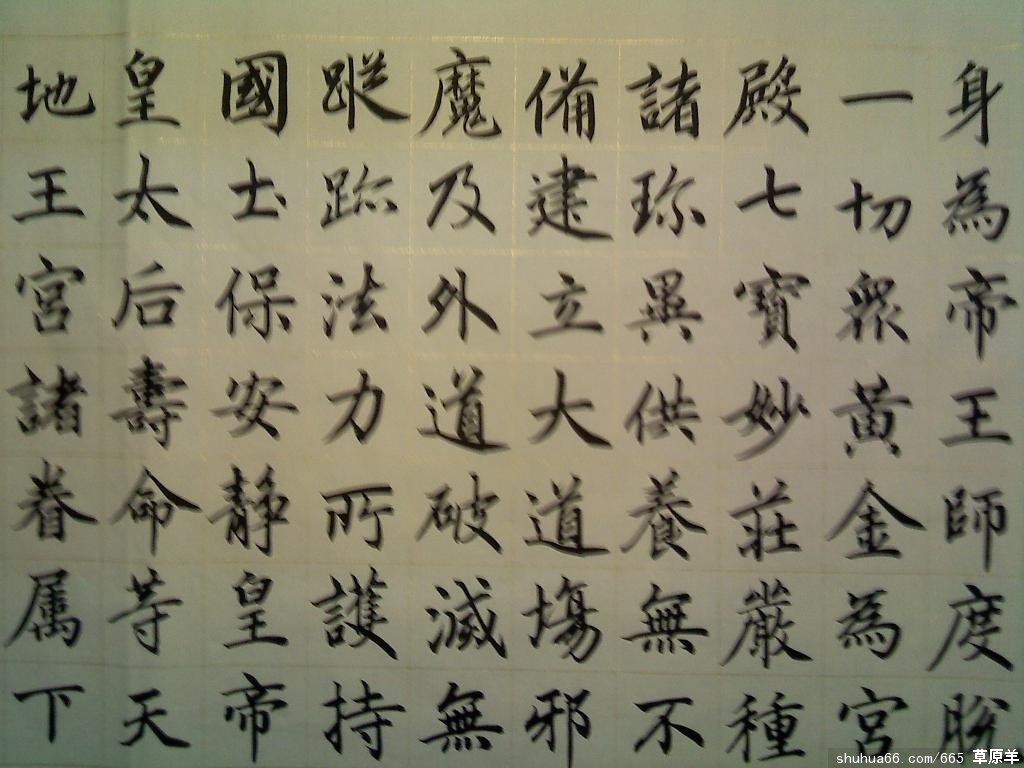 身為帝王師度脫
一切眾黃金為宮
殿七寶妙莊嚴種
諸珎異供養無不
俻建立大道場邪
魔及外道破滅無
蹤跡法力所護持
國土保安静皇帝
皇太后壽命等天
地王宮諸眷属下
shuhua66.com/665 草原羊